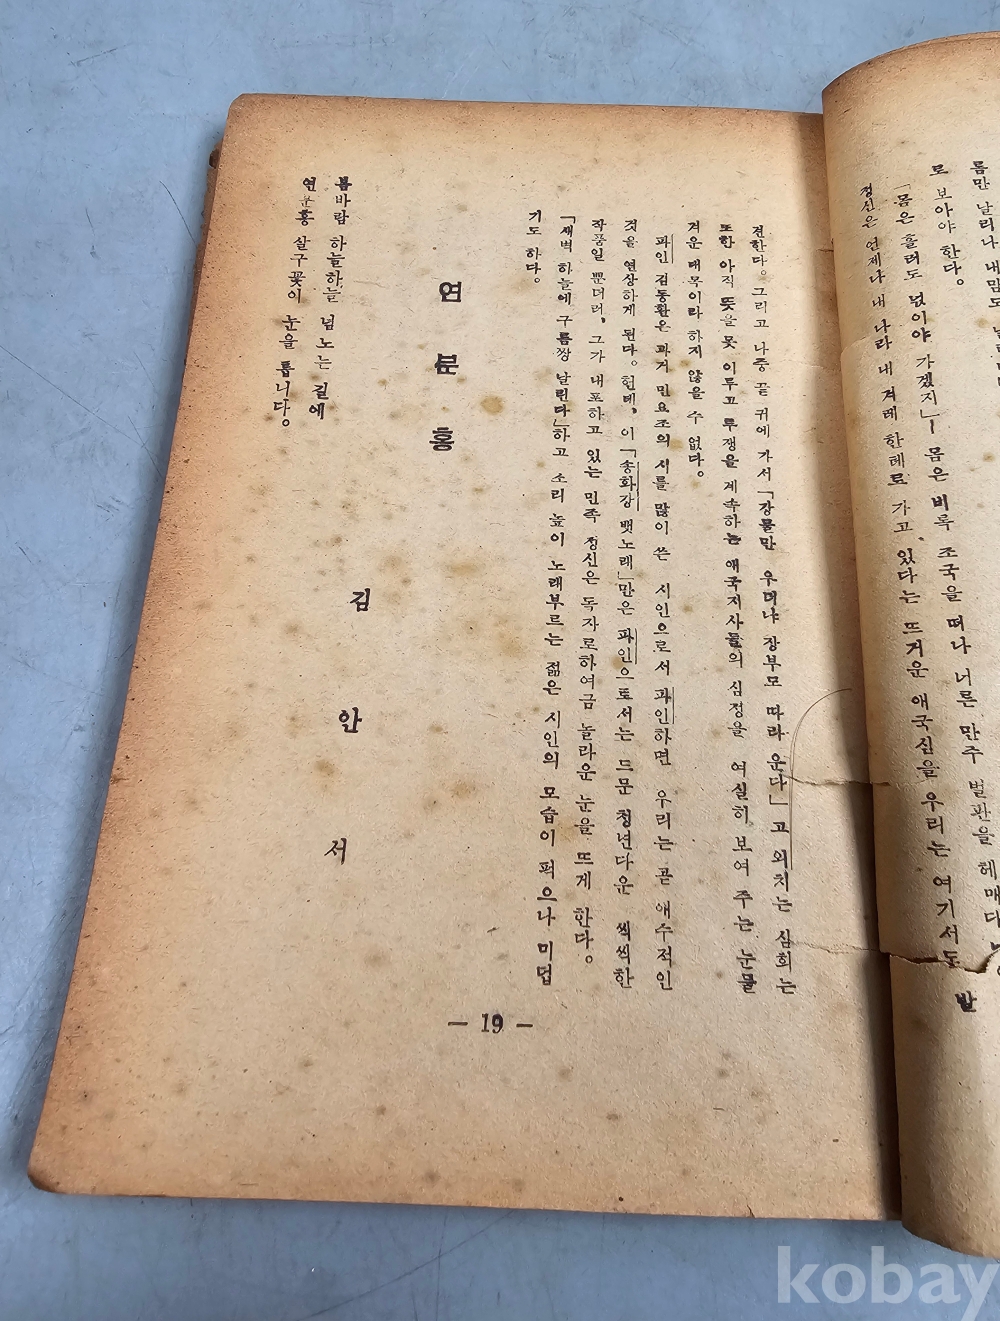 로 보아야 한다.
「몸은 흘러도 넋이야 가겠지」— 몸은 비록 조국을 떠나 너른 만주 벌판을 헤매다
정신은 언제나 내 나라 내 겨레 한테로 가고 있다는 뜨거운 애국심을 우리는 여기서도 발
견한다。그리고 나중 끝 귀에 가서 「강물만 우더냐 장부도 따라 운다」고 외치는 심회는
또한 아직 뜻을 못 이루고 투쟁을 계속하는 애국지사들의 심정을 여실히 보여 주는 눈물
겨운 대목이라 하지 않을 수 없다。
파인 김동환은 과거 민요조의 시를 많이 쓴 시인으로서 파인하면 우리는 곧 애수적인
것을 연상하게 된다。헌데, 이 「송화강 뱃노래」만은 파인으로서는 드문 청년다운 씩씩한
작품일 뿐더러, 그가 내포하고 있는 민족 정신은 독자로하여금 놀라운 눈을 뜨게 한다。
「새벽 하늘에 구름짱 날린다」하고 소리 높이 노래부르는 젊은 시인의 모습이 퍽으나 미덥
기도 하다。
연분홍
김안서
봄바람 하늘하늘 넘노는 길에
연분홍 살구꽃이 눈을 틉니다。
— 19 —
kobay